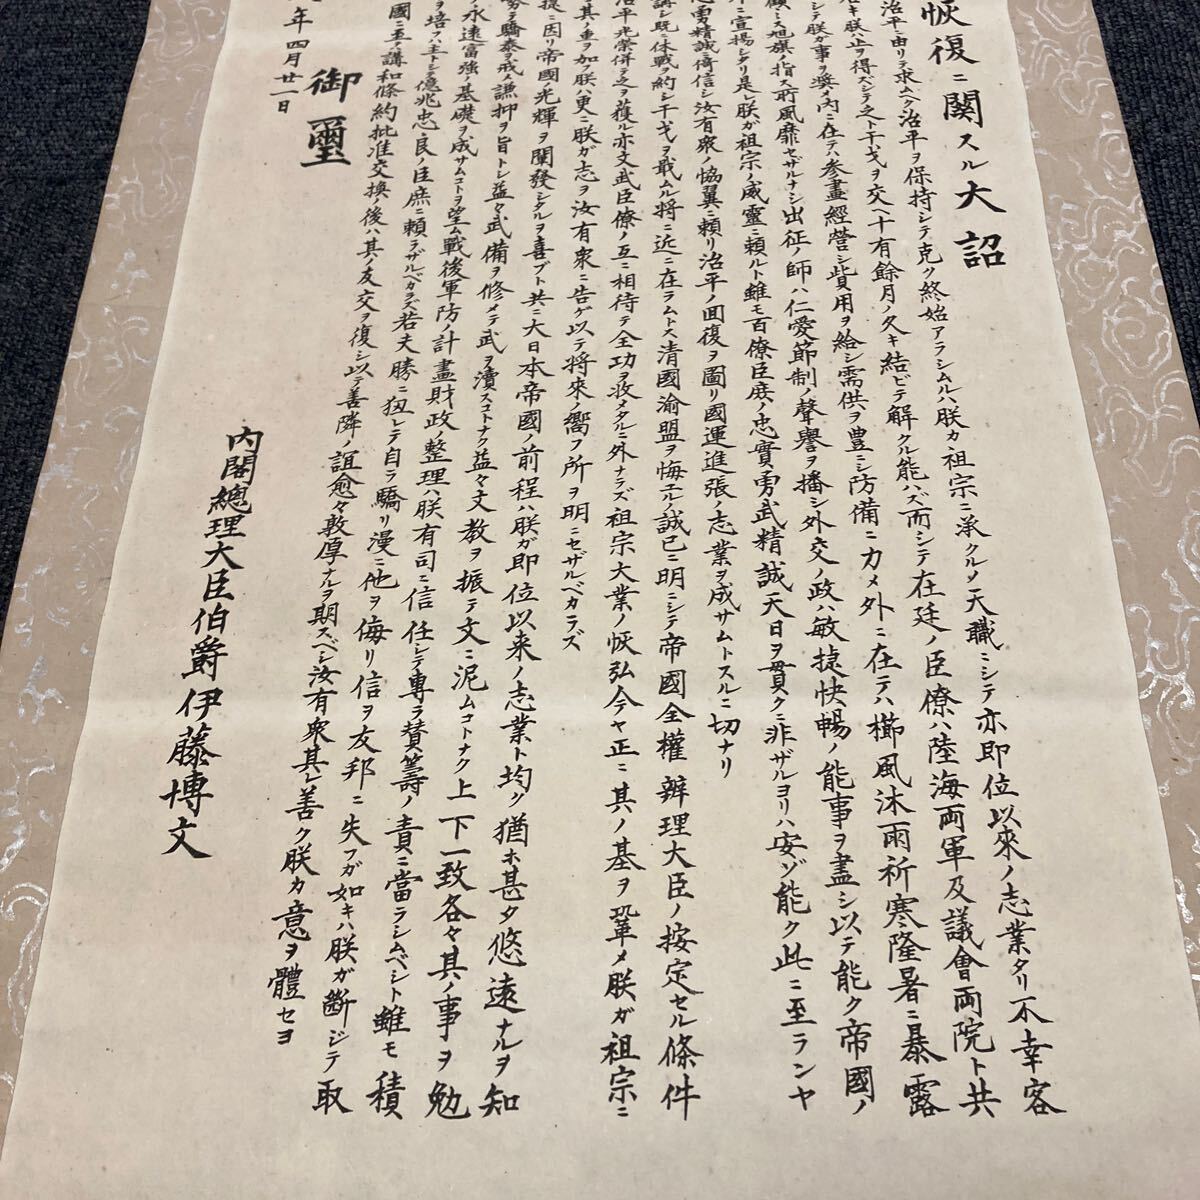 恢復ニ関スル大詔
治平ニ由リテ求ムヘク治平ヲ保持シテ克ク終始アラシムルハ朕カ祖宗ニ承クルノ天職ニシテ亦即位以来ノ志業タリ不幸客
キ朕ハ止ヲ得ズシテ之ト干戈ヲ交ヘ十有餘月ノ久キ結ビテ解クル能ハズ而シテ在廷ノ臣僚ハ陸海両軍及議會両院ト共
シテ朕ガ事ヲ奨メ内ニ在テハ参畫經營シ費用ヲ給シ需供ヲ豊ニシ防備ニカメ外ニ在テハ櫛風沐雨祈寒隆暑ニ暴露
顧ミス旭旗ノ指ス所風靡セザルナシ出征ノ師ハ仁愛節制ノ聲譽ヲ播シ外交ノ政ハ敏捷快暢ノ能事ヲ盡シ以テ能ク帝國ノ
ニ宣揚シタリ是レ朕ガ祖宗ノ威靈ニ頼ルト雖モ百僚臣庶ノ忠實勇武精誠天日ヲ貫クニ非ザルヨリハ安ゾ能ク此ニ至ランヤ
忠勇精誠倚信シ汝有衆ノ協翼ニ頼リ治平ノ回復ヲ圖リ國運進張ノ志業ヲ成サムトスルニ切ナリ
講シ既ニ休戦ヲ約シ干戈ヲ戢ムル将ニ近ニ在ラムトス清國渝盟ヲ悔ユルノ誠已ニ明ニシテ帝國全權辨理大臣ノ按定セル條件
治平光榮併テ之ヲ獲ル亦文武臣僚ノ互ニ相待テ全功ヲ收メタルニ外ナラズ祖宗大業ノ恢弘今ヤ正ニ其ノ基ヲ鞏メ朕ガ祖宗ニ
其ノ重ヲ加ヘ朕ハ更ニ朕ガ志ヲ汝有衆ニ告ゲ以テ将來ノ嚮フ所ヲ明ニセザルベカラズ
捷ニ因リ帝國ノ光輝ヲ闡發シタルヲ喜ブト共ニ大日本帝國ノ前程ハ朕ガ即位以来ノ志業ト均ク猶ホ甚タ悠遠ナルヲ知
勢ヲ驕泰ヲ戒メ謙抑ヲ旨トシ益々武備ヲ修メテ武ヲ瀆スコトナク益々文教ヲ振テ文ニ泥ムコトナク上下一致各々其ノ事ヲ勉
永遠富強ノ基礎ヲ成サムコトヲ望ム戦後軍防ノ計畫財政ノ整理ハ朕有司ニ信任シテ専ラ賛籌ノ責ニ當ラシムベシト雖モ積
ヲ培フハ主トシテ億兆忠良ノ臣庶ニ頼ラザルベカラズ若夫勝ニ狃レテ自ラ驕リ漫ニ他ヲ侮リ信ヲ友邦ニ失フガ如キハ朕ガ断ジテ取
國ニ至テハ講和條約批准交換ノ後ハ其ノ友交ヲ復シ以テ善隣ノ誼愈々敦厚ナルヲ期スベシ汝有衆其レ善ク朕カ意ヲ體セヨ
御璽
年四月廿一日
内閣總理大臣伯爵伊藤博文